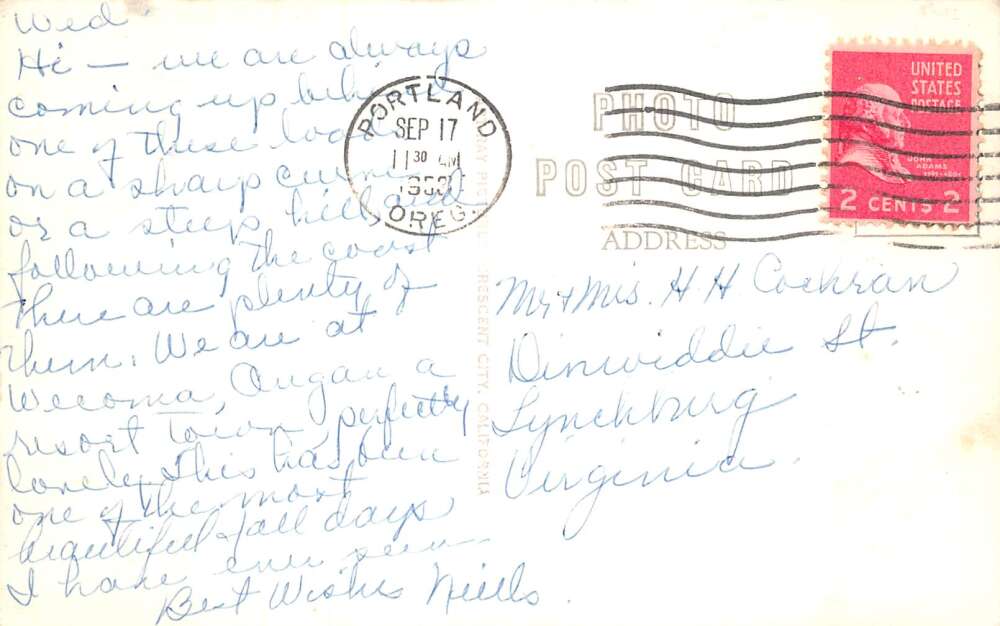 Wed.
Hi — we are always
coming up behind
one of these loads
on a sharp curve
or a steep hill and
following the coast
there are plenty of
them. We are at
Wecoma, Oregan a
resort town, perfectly
lovely. This has been
one of the most
beautiful fall days
I have ever seen
Best Wishes Niells.
PORTLAND
SEP 17
11 30 AM
1953
OREG.
PHOTO
POST CARD
ADDRESS
UNITED
STATES
POSTAGE
JOHN
ADAMS
2 CENTS 2
Mr + Mrs. H H Cochran
Dinwiddie St.
Lynchburg
Virginia.
CRESCENT CITY, CALIFORNIA